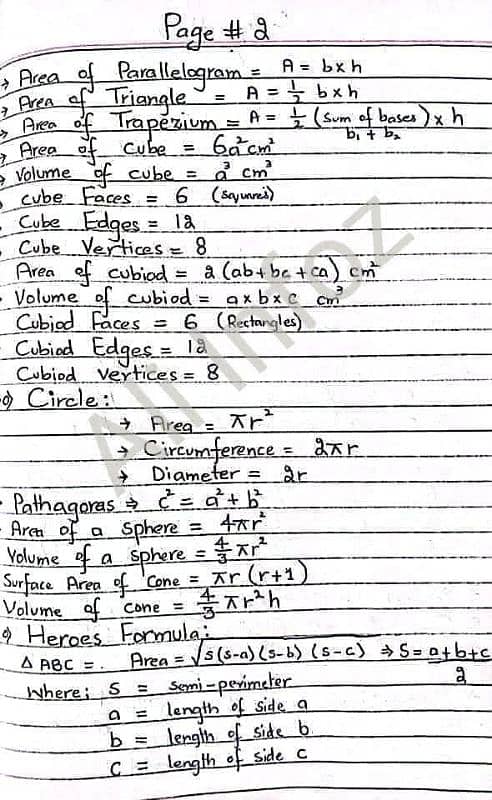 Page # 2
→ Area of Parallelogram = A = b x h
→ Area of Triangle = A = 1/2 b x h
→ Area of Trapezium = A = 1/2 (sum of bases) x h
b₁ + b₂
→ Area of cube = 6a² cm²
→ Volume of cube = a³ cm³
→ cube Faces = 6 (Squares)
Cube Edges = 12
Cube Vertices = 8
Area of cubiod = 2 (ab + bc + ca) cm²
Volume of cubiod = a x b x c cm³
Cubiod Faces = 6 (Rectangles)
Cubiod Edges = 12
Cubiod vertices = 8
Circle:
→ Area = πr²
→ Circumference = 2πr
→ Diameter = 2r
Pathagoras ⇒ c² = a² + b²
Area of a sphere = 4πr²
Volume of a sphere = 4/3 πr²
Surface Area of Cone = πr (r+1)
Volume of cone = 4/3 πr²h
Heroes Formula:
△ ABC = . Area = √s(s-a) (s-b) (s-c) ⇒ S = a+b+c/2
Where; S = semi-perimeter
a = length of side a
b = length of side b
c = length of side c
Ali Infoz